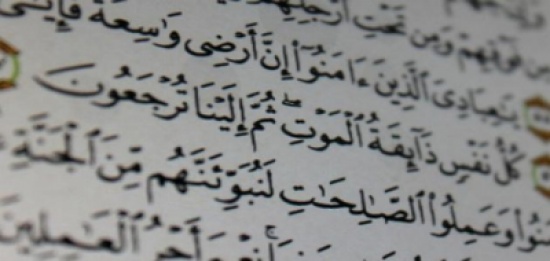 فوقهم ومن تحت أرجلهم
يَـٰعِبَادِىَ ٱلَّذِينَ ءَامَنُوٓا۟ إِنَّ أَرْضِى وَٰسِعَةٌ فَإِيَّـٰىَ
كُلُّ نَفْسٍ ذَآئِقَةُ ٱلْمَوْتِ ۖ ثُمَّ إِلَيْنَا تُرْجَعُونَ
وَعَمِلُوا۟ ٱلصَّـٰلِحَـٰتِ لَنُبَوِّئَنَّهُم مِّنَ ٱلْجَنَّةِ
أَجْرُ ٱلْعَـٰمِلِينَ